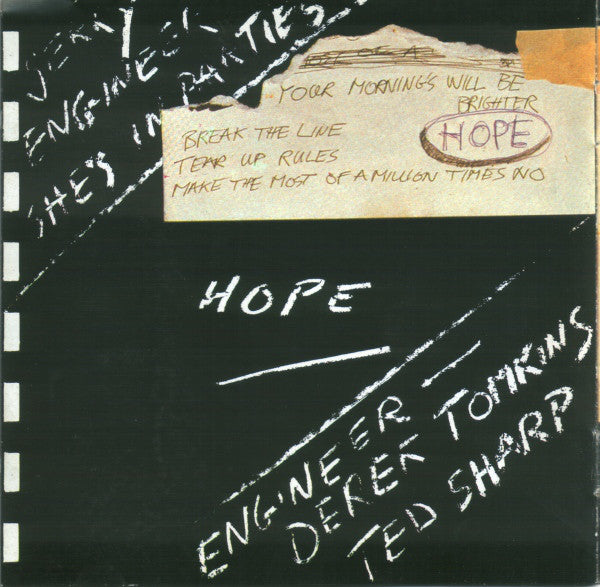 JERRY
ENGINEER
SHE'S IN PARTIES
YOUR MORNING'S WILL BE
BRIGHTER
HOPE
BREAK THE LINE
TEAR UP RULES
MAKE THE MOST OF A MILLION TIMES NO
HOPE
ENGINEER
DEREK TOMKINS
TED SHARP